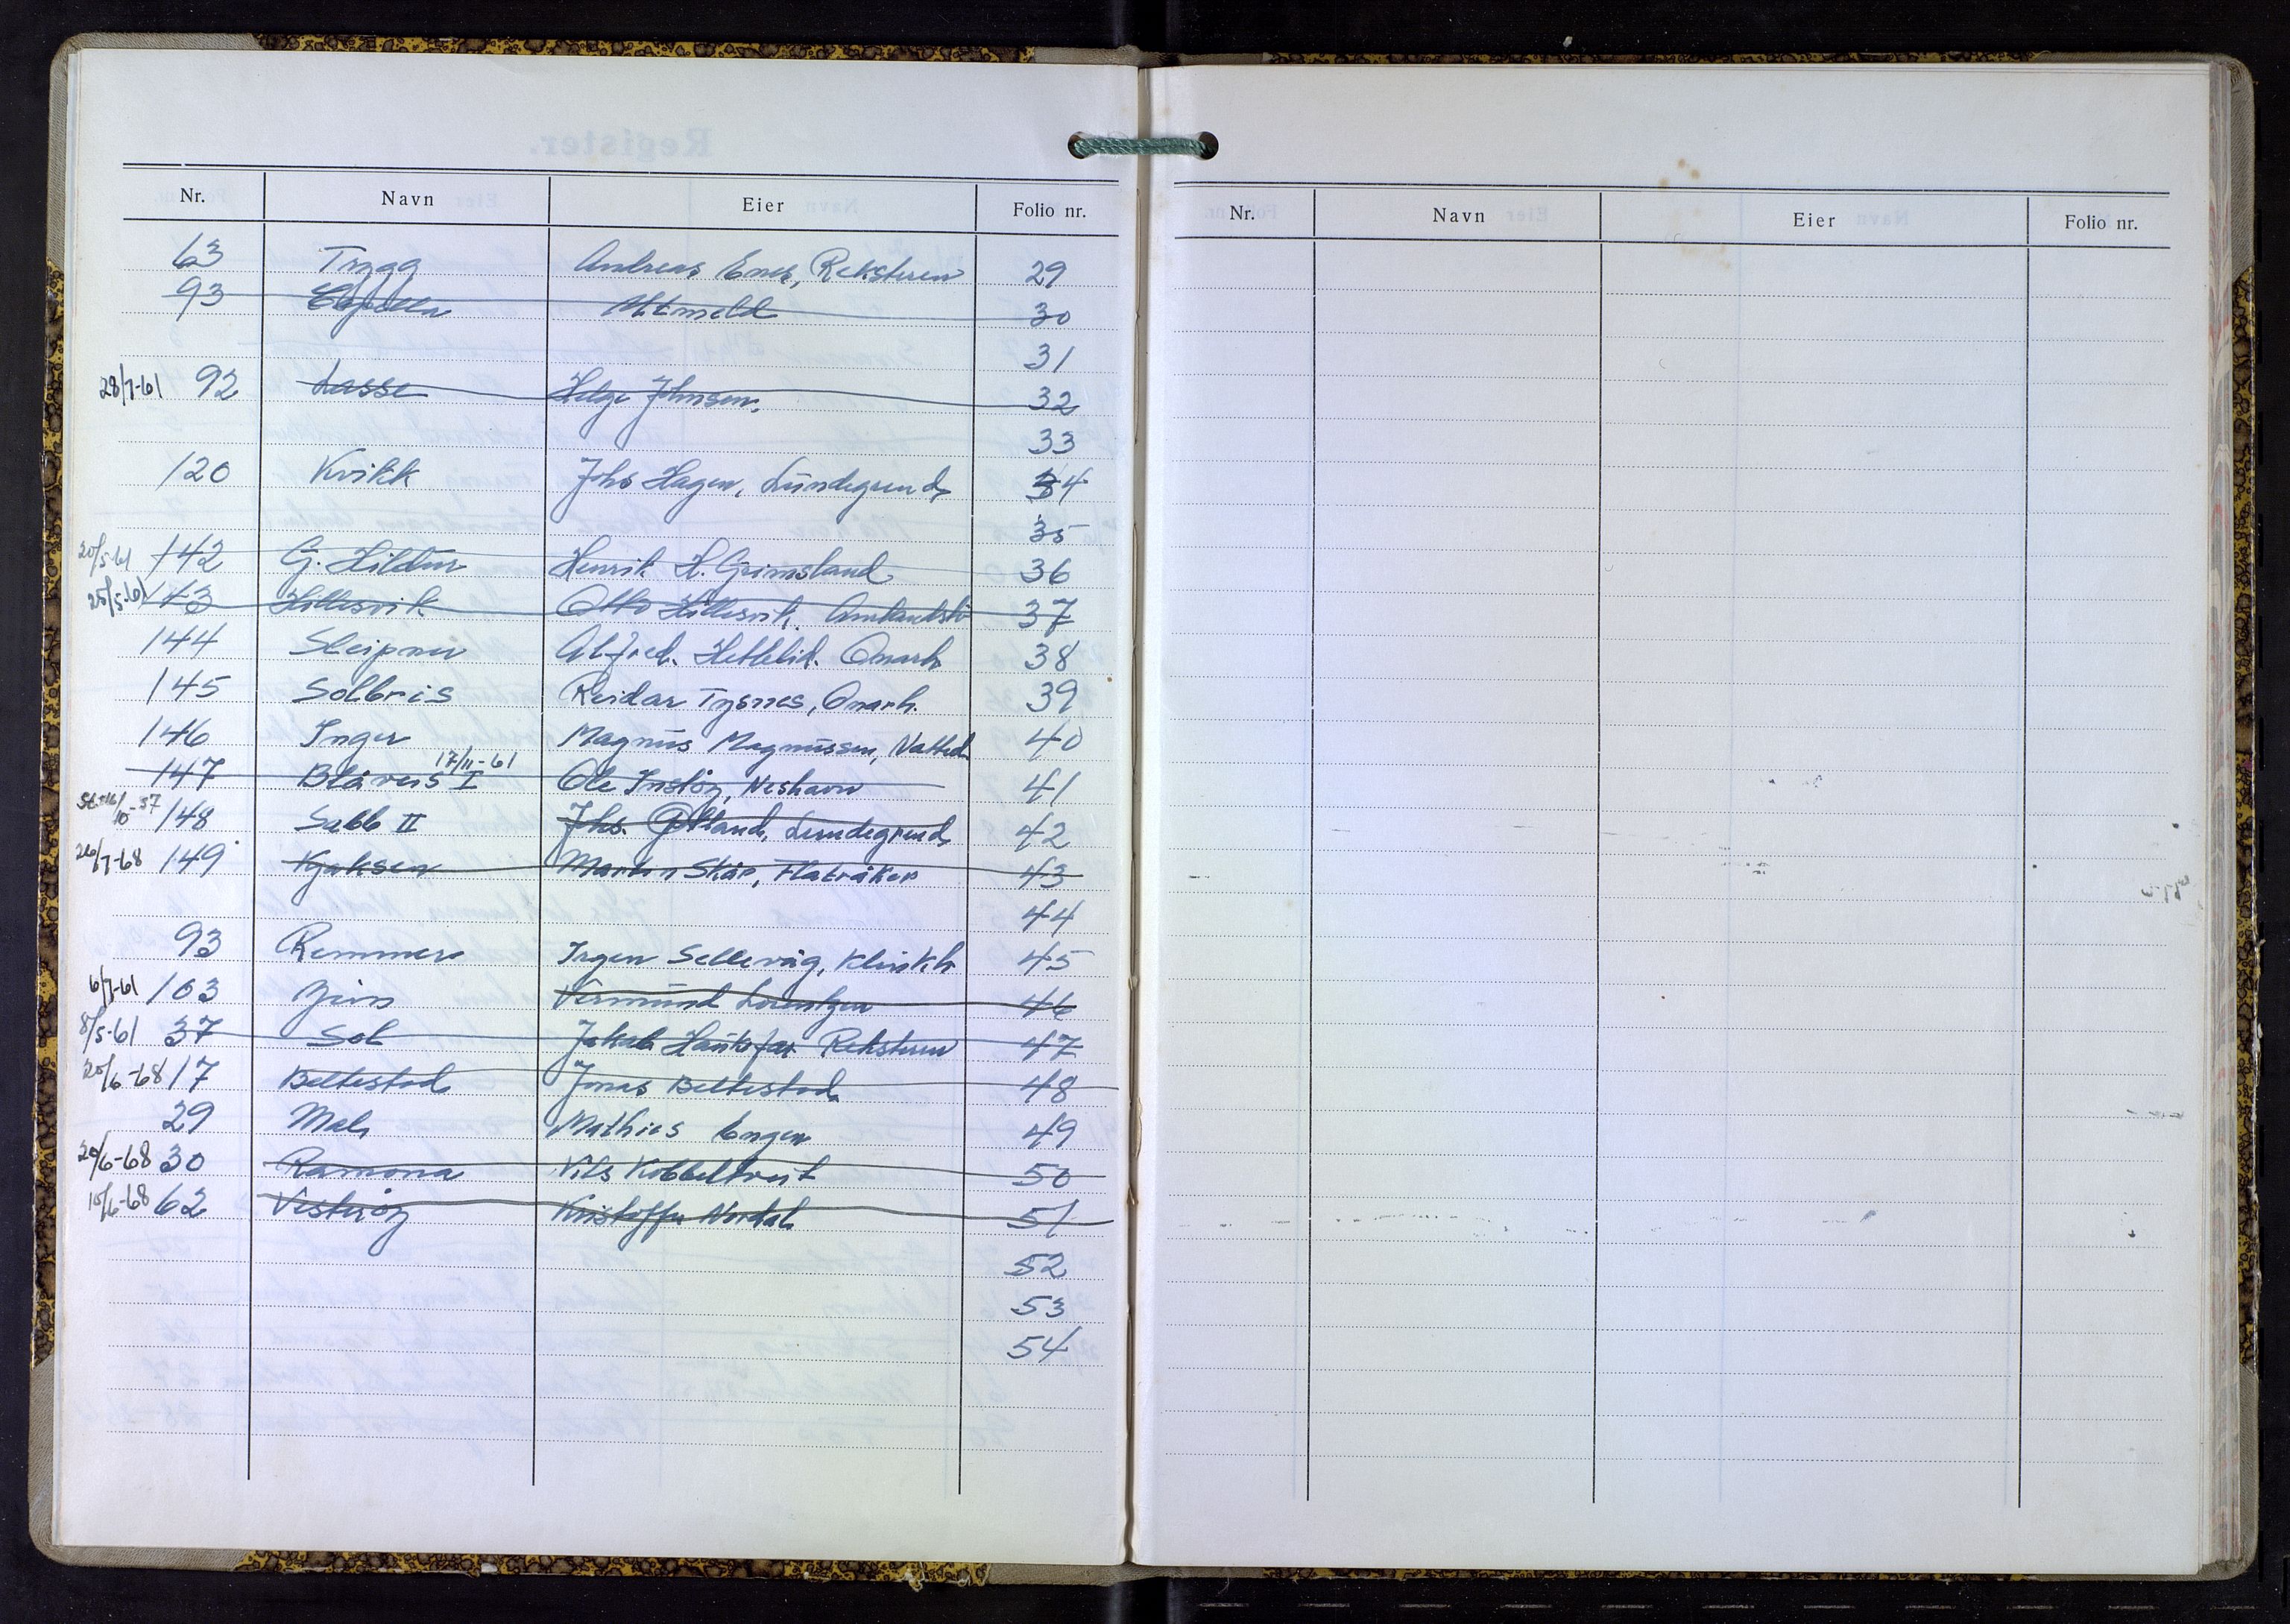 Nr. Navn Eier Folio nr.
63 Trygg Andreas Enes, Reksteren 29
93 Capella Utmeld 30
31
28/7-61 92 Lasse Helge Johnsen. 32
33
120 Kvikk Johs Hagen, Lundegrend 34
35
20/5-61 142 G. Hildur Henrik H. Grimsland 36
25/5-61 143 Hillesvik Otto Hillesvik. 37
144 Sleipner Alfred. Hetlelid. Onarh. 38
145 Solbris Reidar Tysnes, Onarh. 39
146 Inger Magnus Magnussen, 40
17/11-61
147 Blåveis I Ole Instøy, Neshavn 41
148 Sabb II Johs. Lundegrend 42
26/7-68 149 Kjaksen Martin Skår, Flatråker 43
44
93 Remmen Ingen Sellevåg, 45
6/7-61 103 Lorentzen 46
8/5-61 37 Sol Jakob Haukøy Reksteren 47
20/6-68 17 Beltestad Jonas Beltestad 48
29 Mathies Engen 49
20/6-68 30 Ramona Nils Kobbeltveit 50
10/6-68 62 Vesterøy Kristoffer Nordal 51
52
53
54
Nr. Navn Eier Folio nr.